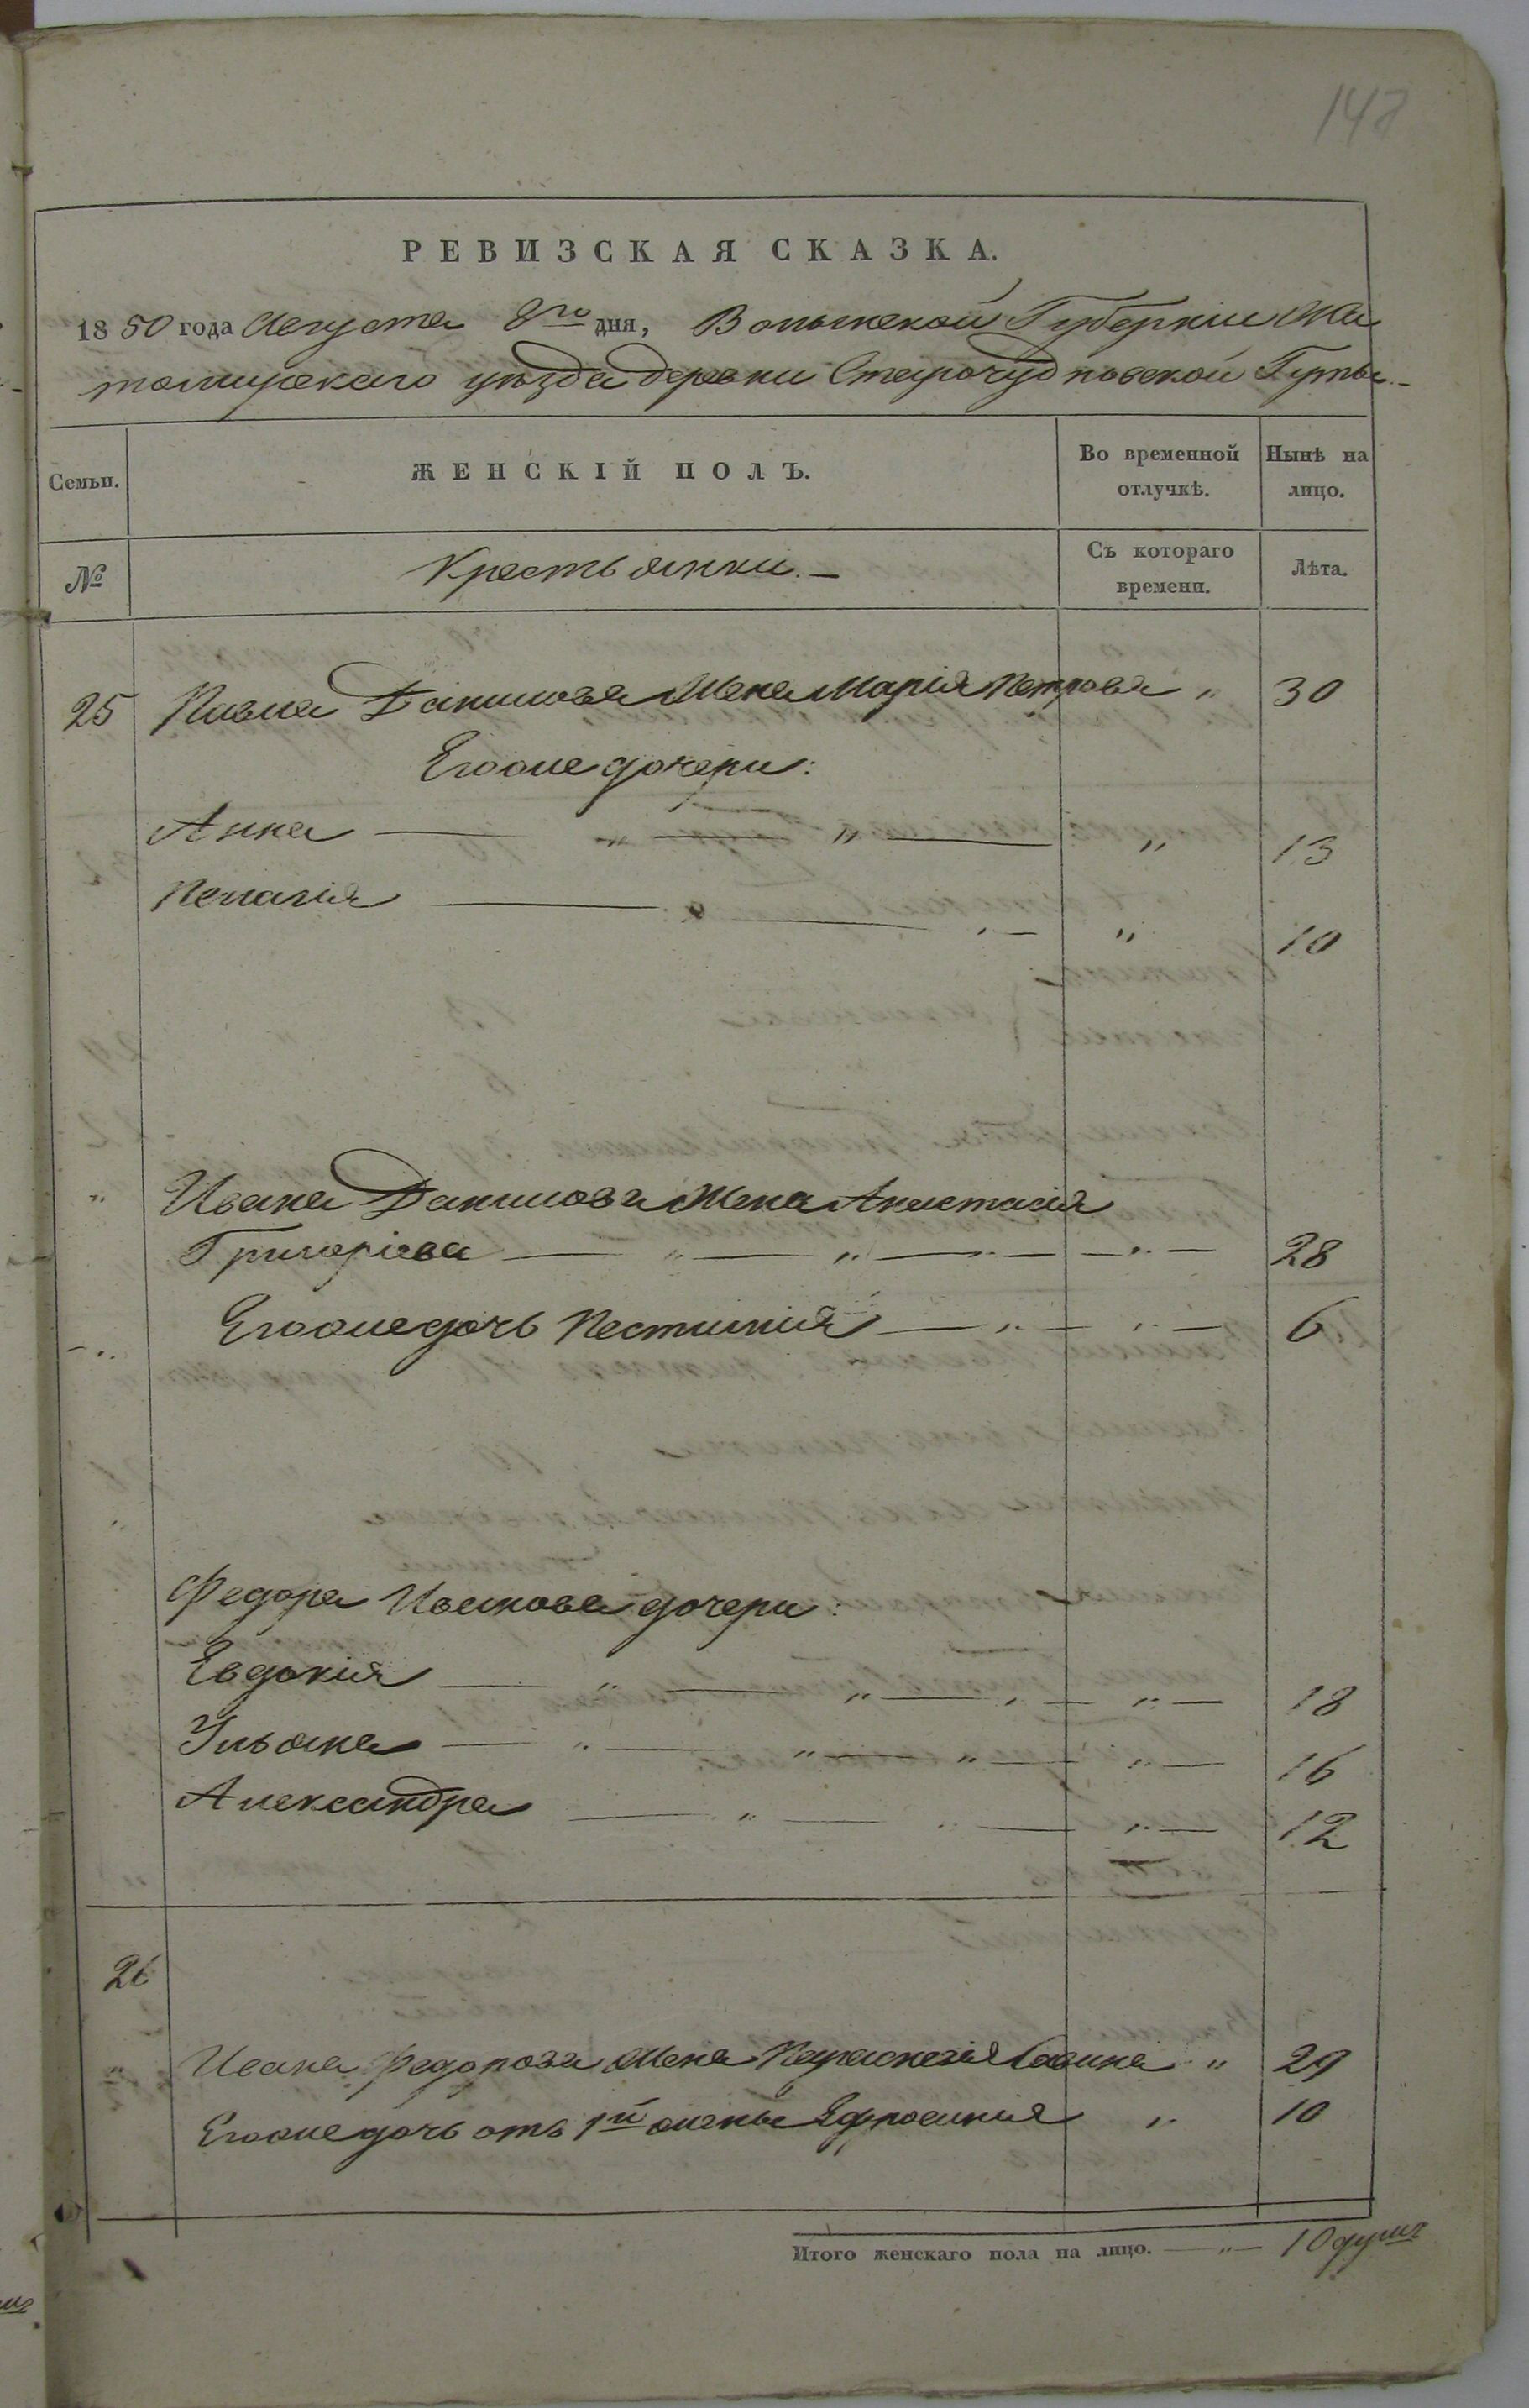 148
РЕВИЗСКАЯ СКАЗКА.
1850 года Августа 8го дня, Волынской Губернии Жи
томирскаго уѣзда деревни Старочудновской Гуты.
Семьи. ЖЕНСКІЙ ПОЛЪ. Во временной отлучкѣ. Нынѣ на лицо.
№ Крестьянки. Съ котораго времени. Лѣта.
25 Павла Данилова Жена Марія Петрова " 30
Егоже дочери:
Анна — " — " — " 13
Пелагія — " — " — " 10
" Ивана Данилова Жена Анастасія
Григоріева — " — " — " — " — 28
" Егоже дочь Юстинія — " — " — 6
Федора Иванова дочери:
Евдокія — " — " — " — " — 18
Ульяна — " — " — " — " — 16
Александра — " — " — " — 12
26
" Ивана Федорова Жена Параскевія " 29
Егоже дочь отъ 1й жены Ефросинія " 10
Итого женскаго пола на лицо. — " — 10 душъ